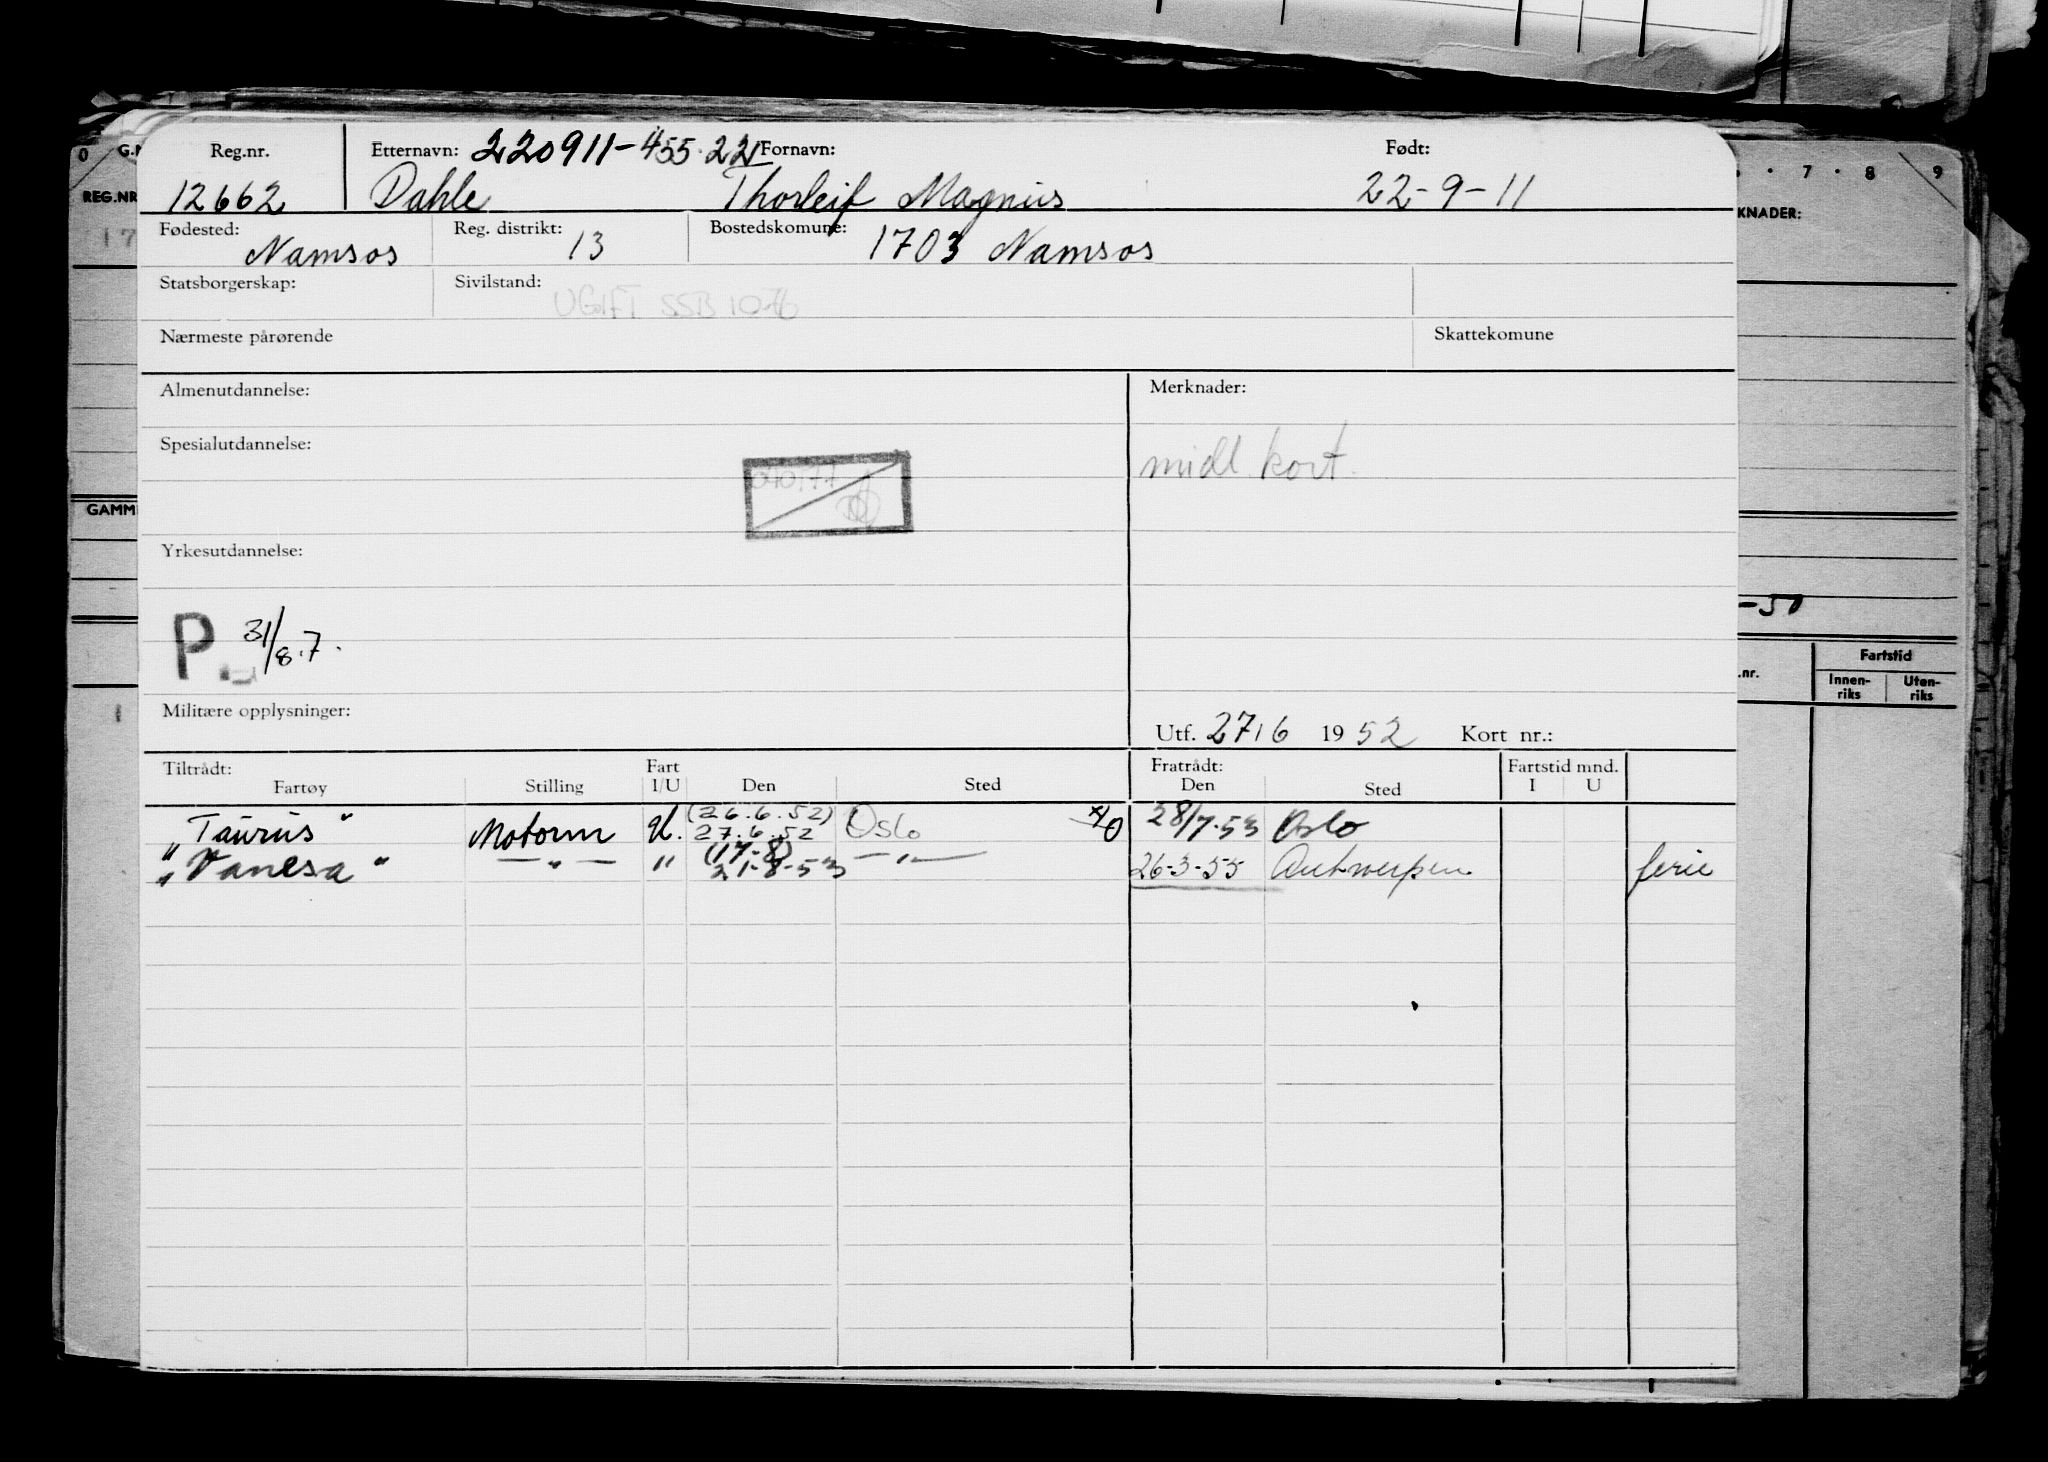 Reg.nr. Etternavn: 220911-455.22 Fornavn: Født:
12662 Dahle Thorleif Magnus 22-9-11
Fødested: Namsos Reg. distrikt: 13 Bostedskomune: 1703 Namsos
Statsborgerskap: Sivilstand: UGIFT SSB 10-76
Nærmeste pårørende Skattekomune
Almenutdannelse: Merknader:
Spesialutdannelse: midl. kort.
Yrkesutdannelse:
P. 31/8.7.
Militære opplysninger: Utf. 27/6 1952 Kort nr.:
Tiltrådt: Fart Fratrådt: Fartstid mnd.
Fartøy Stilling I/U Den Sted Den Sted I U
(26.6.52)
"Taurus" Motorm U. 27.6.52 Oslo 28/7-53 Oslo
(17-8)
"Vanesa" — " — " 21-8-53 — " — 26-3-55 Antwerpen ferie
0 G.
REG.NR
17
GAMM
1
7 . 8 . 9
KNADER:
-50
.nr. Fartstid
Innen-riks Uten-riks